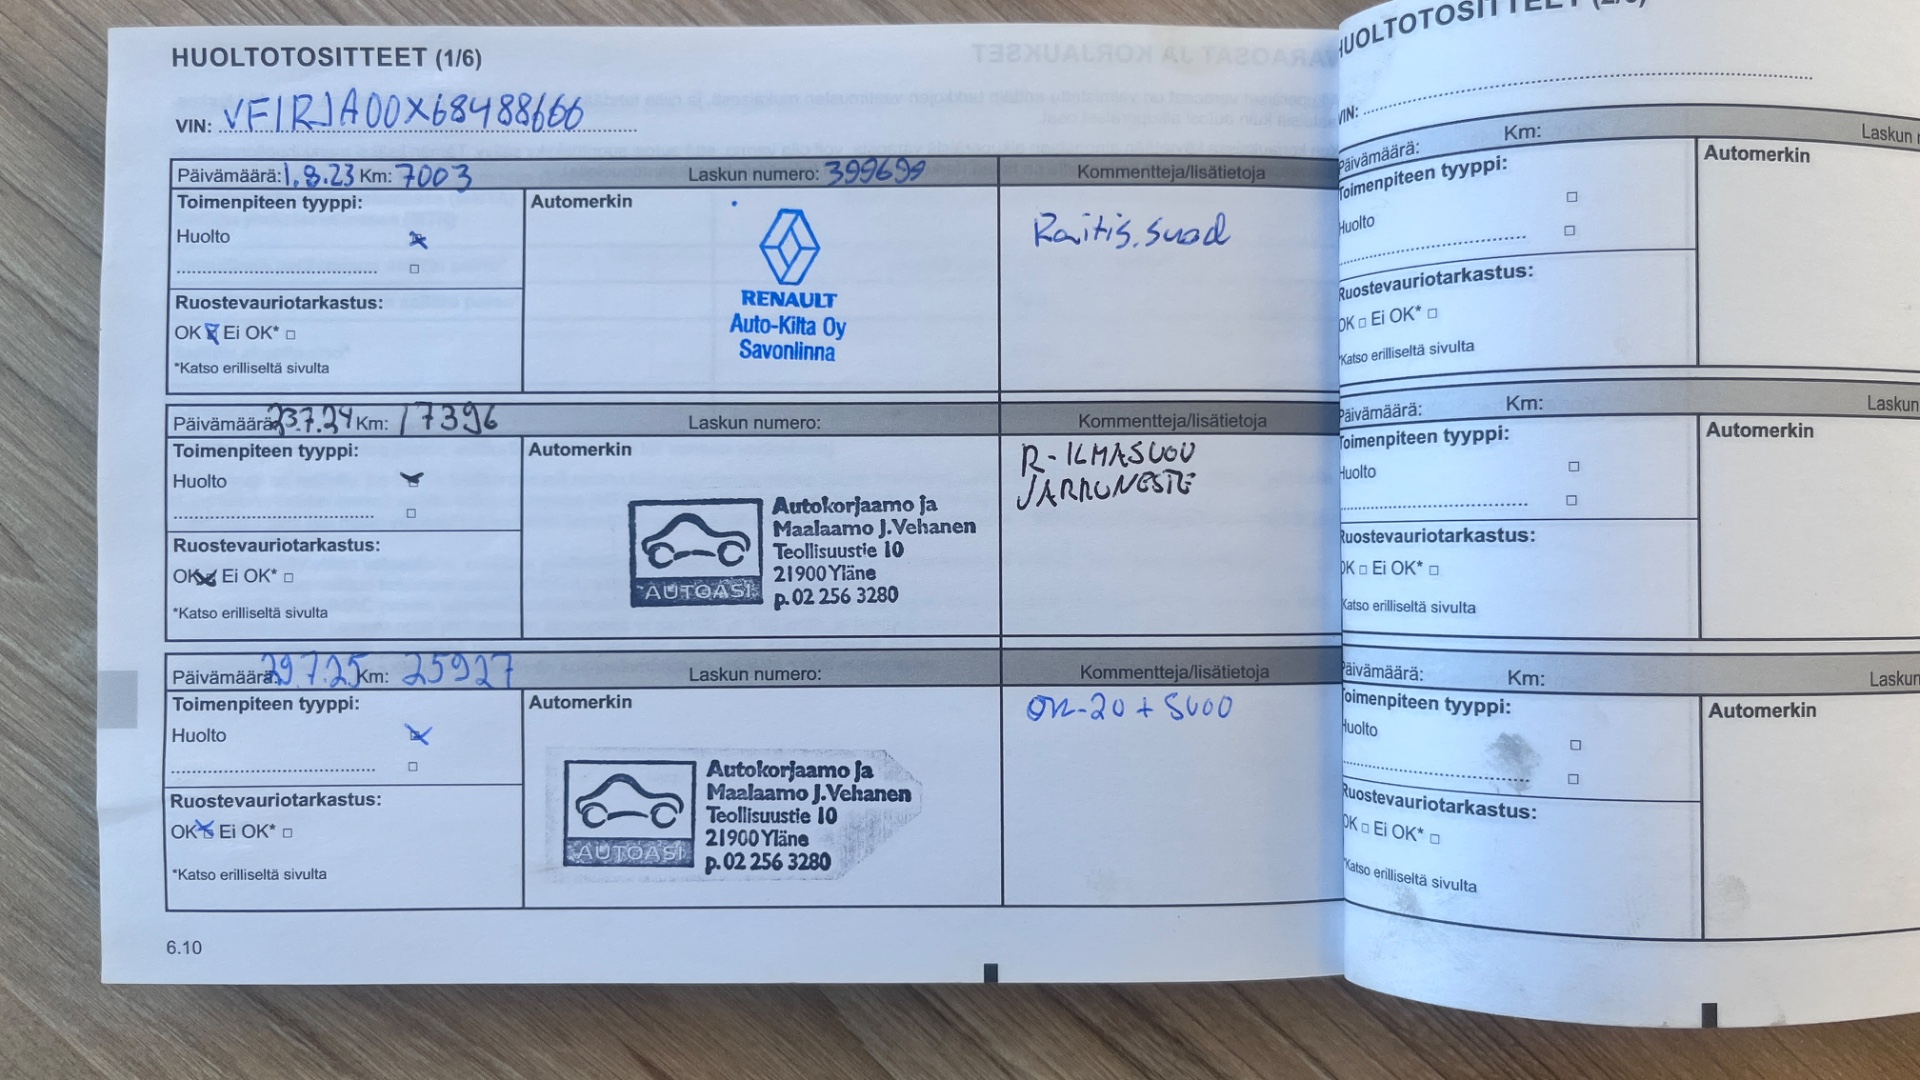 HUOLTOTOSITTEET (1/6)
VIN: VF1RJA00X68488666
Päivämäärä: 1.8.23 Km: 7003 Laskun numero: 399699 Kommentteja/lisätietoja
Toimenpiteen tyyppi: Automerkin
Huolto
Raitis.suod
RENAULT
Auto-Kilta Oy
Savonlinna
Ruostevauriotarkastus:
OK Ei OK*
*Katso erilliseltä sivulta
Päivämäärä: 23.7.24 Km: 17396 Laskun numero: Kommentteja/lisätietoja
Toimenpiteen tyyppi: Automerkin
Huolto
R-ILMASUOD
JARRUNESTE
Autokorjaamo ja
Maalaamo J.Vehanen
Teollisuustie 10
21900 Yläne
p. 02 256 3280
AUTOASI
Ruostevauriotarkastus:
OK Ei OK*
*Katso erilliseltä sivulta
Päivämäärä: 29.7.25 Km: 25927 Laskun numero: Kommentteja/lisätietoja
Toimenpiteen tyyppi: Automerkin
Huolto
0W-20 + SUOD
Autokorjaamo ja
Maalaamo J.Vehanen
Teollisuustie 10
21900 Yläne
p. 02 256 3280
AUTOASI
Ruostevauriotarkastus:
OK Ei OK*
*Katso erilliseltä sivulta
6.10
HUOLTOTOSITTEET
VIN:
Päivämäärä: Km: Laskun
Toimenpiteen tyyppi: Automerkin
Huolto
Ruostevauriotarkastus:
OK Ei OK*
*Katso erilliseltä sivulta
Päivämäärä: Km: Laskun
Toimenpiteen tyyppi: Automerkin
Huolto
Ruostevauriotarkastus:
OK Ei OK*
*Katso erilliseltä sivulta
Päivämäärä: Km: Laskun
Toimenpiteen tyyppi: Automerkin
Huolto
Ruostevauriotarkastus:
OK Ei OK*
*Katso erilliseltä sivulta